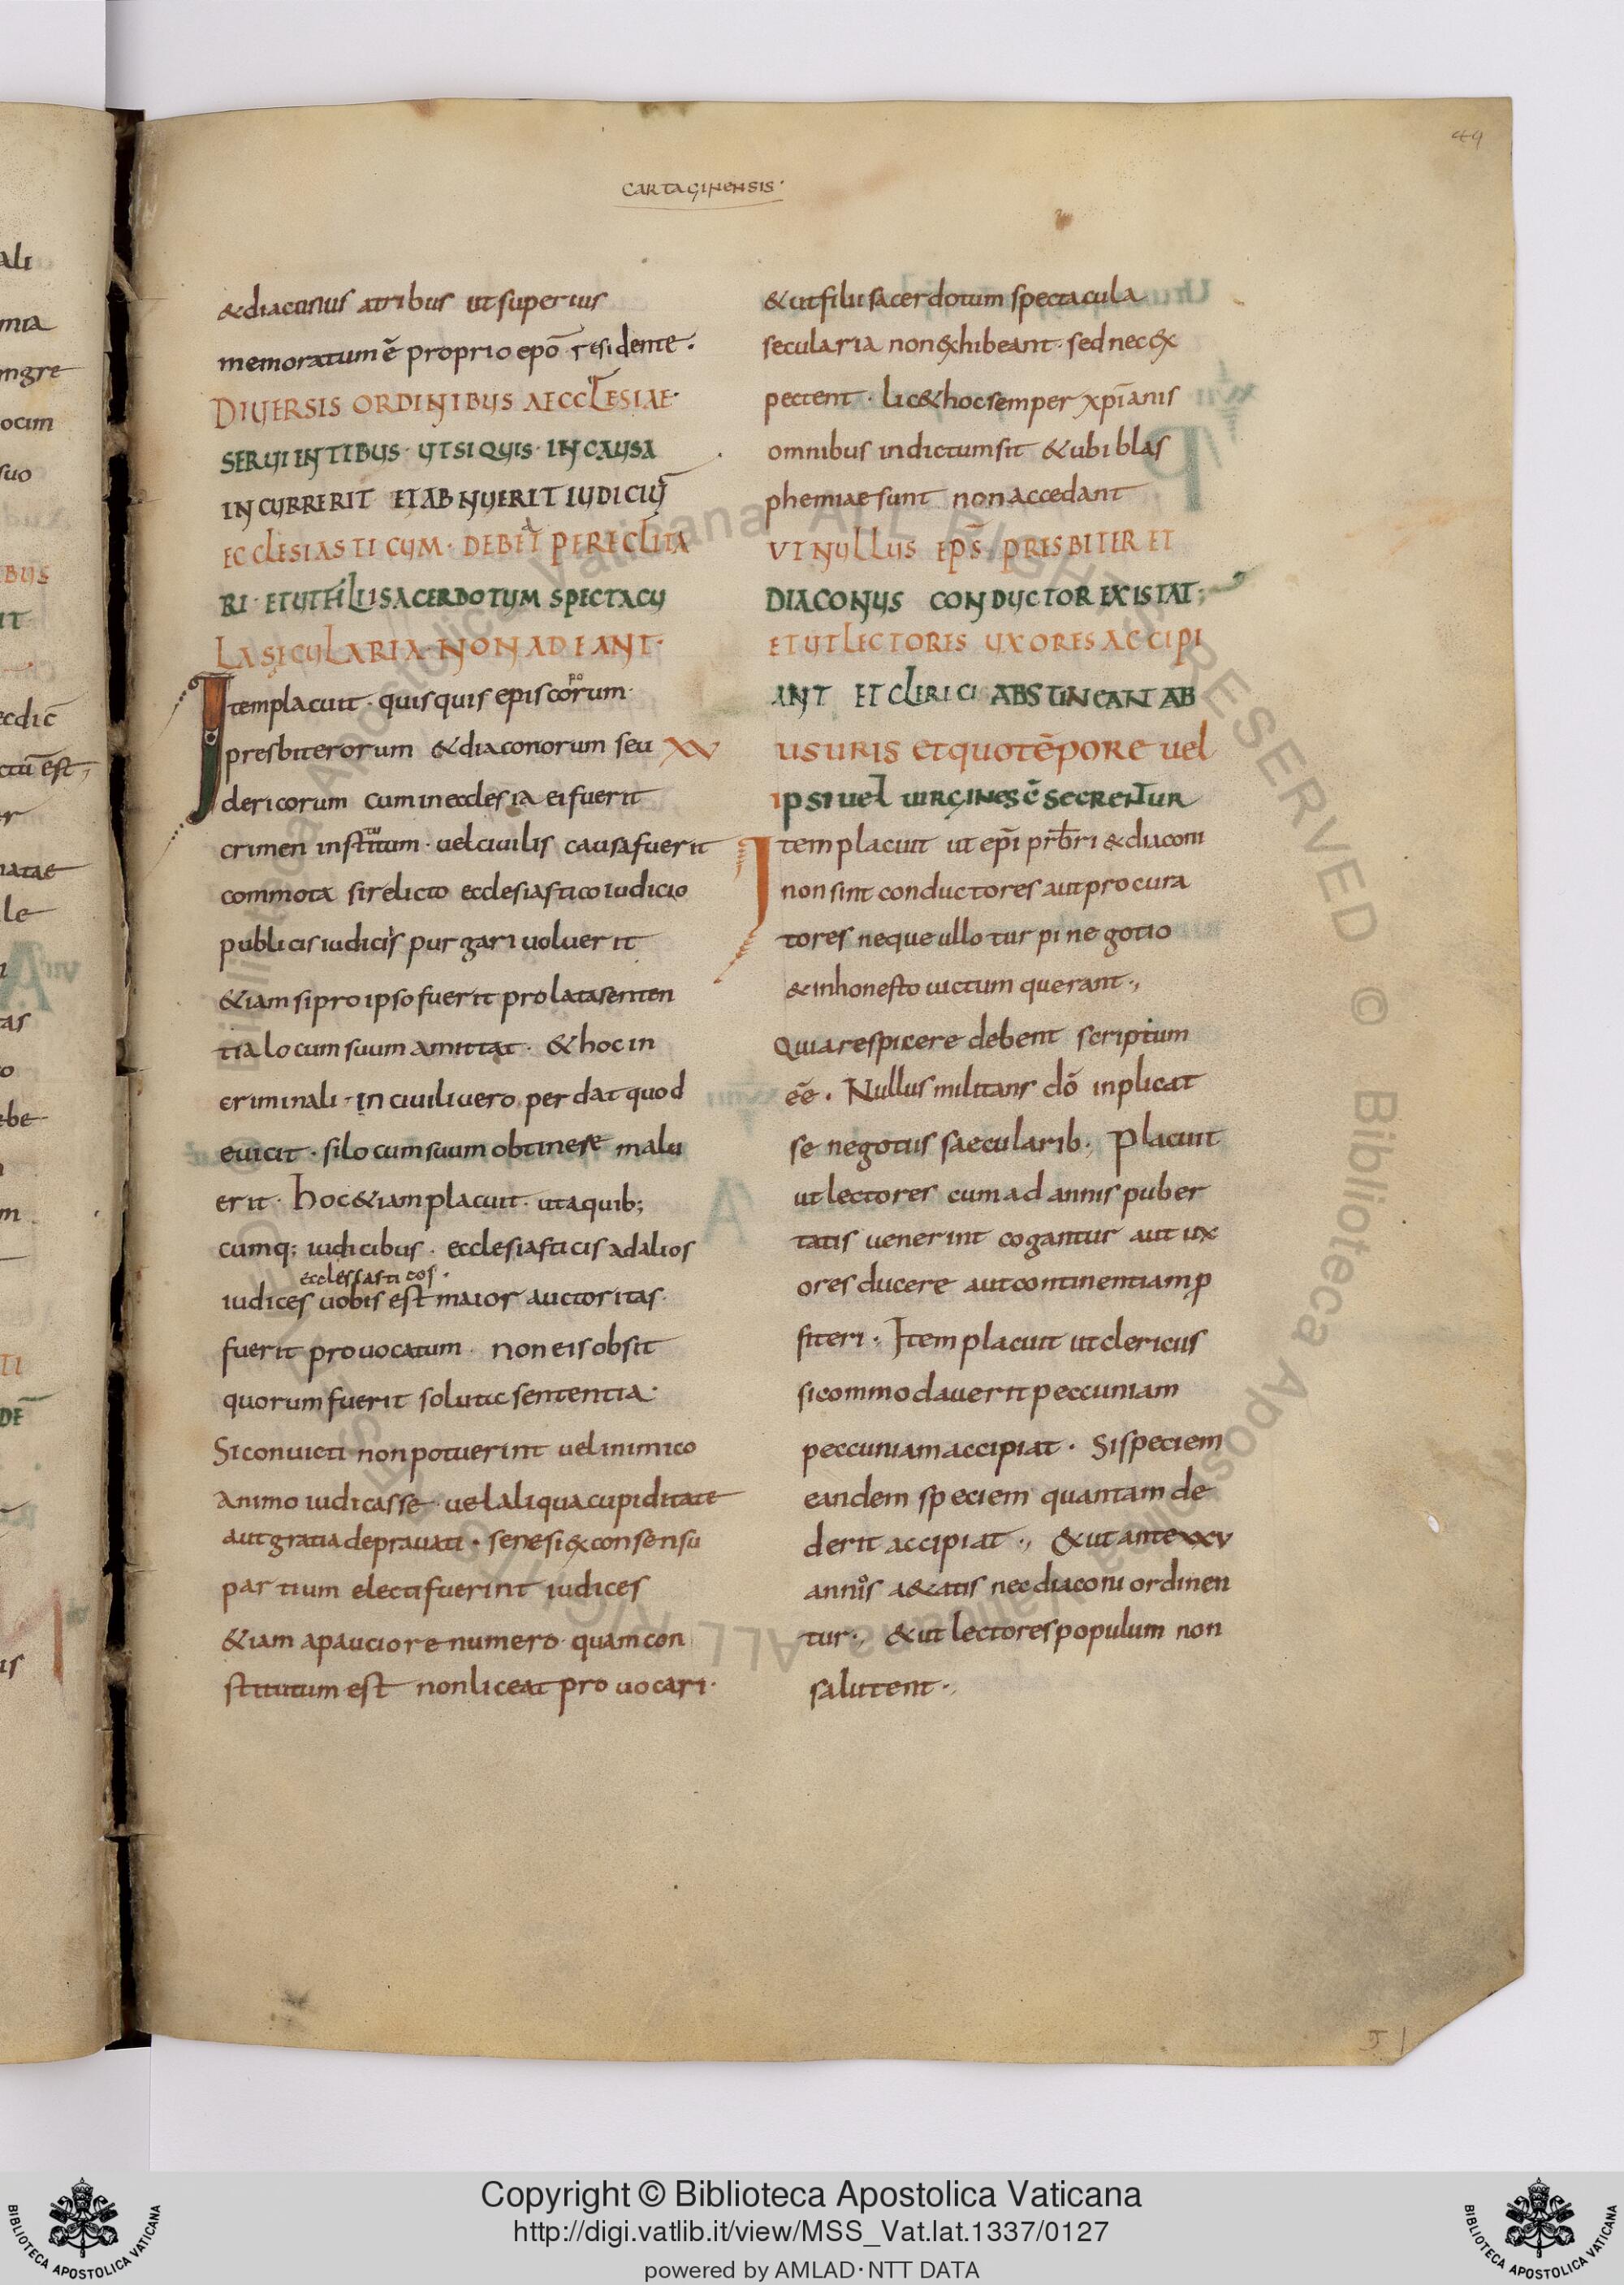 44
CARTAGINENSIS·
& diaconus atribus ut superius
memoratum ē proprio epō residente.
DIUERSIS ORDINIBUS AECCLESIAE·
SERUIENTIBUS· UT SI QUIS· IN CAUSA
INCURRERIT ET ABNUERIT IUDICIŪ
ECCLESIASTICUM· DEBEAT PERECLITA
RI· ET UT FILII SACERDOTUM SPECTACU
LA SECULARIA· NON ADEANT·
Item placuit· quisquis episcoporum·
presbiterorum & diaconorum seu
XV
clericorum cum in ecclesia ei fuerit
crimen institutum· uel ciuilis causa fuerit
commota si relicto ecclesiastico iudicio
publicis iudiciis purgari uoluerit
&iam si pro ipso fuerit prolata senten
tia locum suum amittat· & hoc in
criminali· in ciuili uero perdat quod
euicit· si locum suum obtinere malu
erit· hoc &iam placuit· ut a quib;
cumq; iudicibus· ecclesiasticis ad alios
ecclesiasticos·
iudices uobis est maior auctoritas·
fuerit prouocatum· non eis obsit
quorum fuerit soluta sententia·
Si conuicti non potuerint uel inimico
animo iudicasse· uel aliqua cupiditate
aut gratia deprauati· sene si ex consensu
partium electi fuerint iudices
&iam a pauciore numero· quam con
stitutum est non liceat prouocari·
& ut filii sacerdotum spectacula
secularia non exhibeant· sed nec ex
pectent· lic& hoc semper xpīanis
omnibus indictum sit & ubi blas
phemiae sunt non accedant
UT NULLUS EPS̄ PRESBITER ET
DIACONUS CONDUCTOR EXISTAT;
ET UT LECTORES UXORES ACCIPI
ANT ET CLERICI ABSTINEANT AB
USURIS et quo tēpore uel
ipsi uel uirgines cō̄secrentur
Item placuit ut epī prb̄ri & diaconi
non sint conductores aut procura
tores neque ullo turpi negotio
& inhonesto uictum querant·,
Quia respicere debent scriptum
eē· Nullus militans dō inplicat
se negotiis saecularib; Placuit
ut lectores cum ad annis puber
tatis uenerint cogantur aut ux
ores ducere aut continentiam ꝓ
fiteri· Item placuit ut clericus
si commodauerit peccuniam
peccuniam accipiat· Si speciem
eandem speciem quantam de
derit accipiat·, & ut ante xxv
annos a&atis nec diaconi ordinen
tur·, & ut lectores populum non
salutent·,
Copyright © Biblioteca Apostolica Vaticana
http://digi.vatlib.it/view/MSS_Vat.lat.1337/0127
powered by AMLAD·NTT DATA
BIBLIOTECA APOSTOLICA VATICANA
BIBLIOTECA APOSTOLICA VATICANA